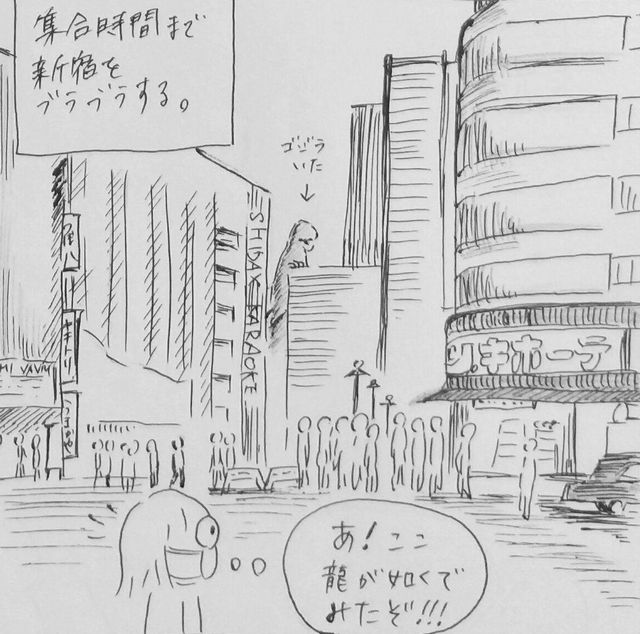 集合時間まで
新宿を
ブラブラする。
ゴジラ
いた
↓
SHIDAX KARAOKE
ン.キホーテ
あ!ここ
龍が如くで
みたぞ!!!